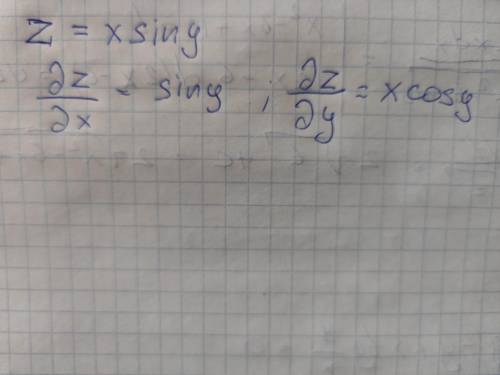 z = x sin y
∂z/∂x = sin y ; ∂z/∂y = x cos y